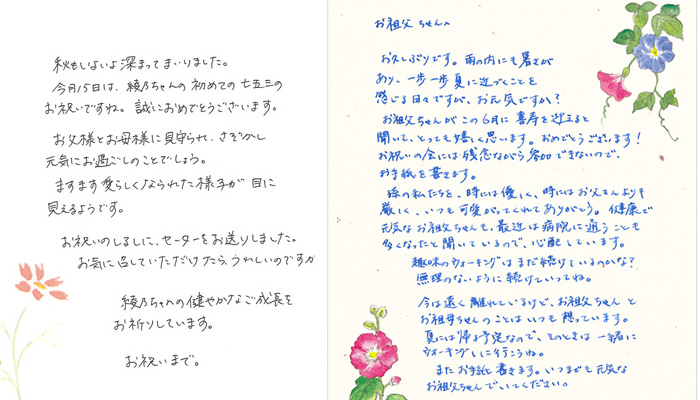 秋もいよいよ深まってまいりました。
今月15日は、綾乃ちゃんの初めての七五三の
お祝いですね。誠におめでとうございます。
お父様とお母様に見守られ、さぞかし
元気にお過ごしのことでしょう。
ますます愛らしくなられた様子が目に
見えるようです。
お祝いのしるしに、セーターをお送りしました。
お気に召していただけたら、うれしいのですが
綾乃ちゃんの健やかなご成長を
お祈りしています。
お祝いまで。
お祖父ちゃんへ
お久しぶりです。雨の内にも暑さが
あり、一歩一歩夏に近づくことを
感じる日々ですが、お元気ですか?
お祖父ちゃんがこの6月に喜寿を迎えると
聞いて、とっても嬉しく思います。おめでとうございます!
お祝いの会には残念ながら参加できないので、
お手紙を書きます。
孫の私たちを、時には優しく、時にはお父さんよりも
厳しく、いつも可愛がってくれてありがとう。健康で
元気なお祖父ちゃんも、最近は病院に通うことも
多くなったと聞いているので、心配しています。
趣味のウォーキングはまだ続けているのかな?
無理のないように続けていってね。
今は遠く離れているけど、お祖父ちゃんと
お祖母ちゃんのことはいつも想っています。
夏には帰る予定なので、そのときは一緒に
ウォーキングしに行こうね。
またお手紙書きます。いつまでも元気な
お祖父ちゃんでいてください。